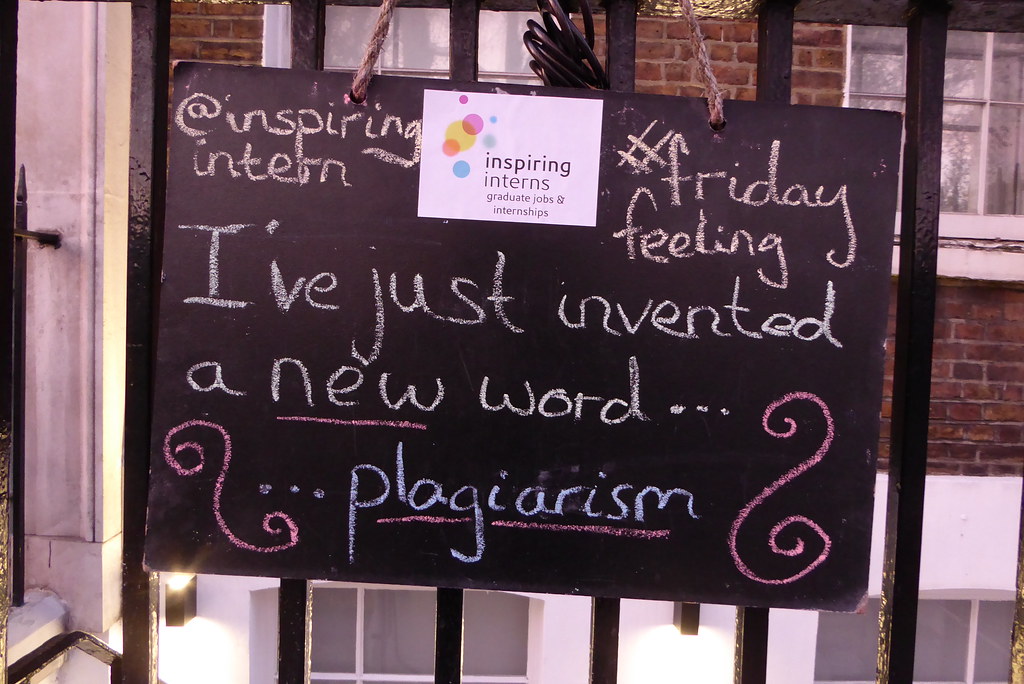 @inspiring
intern
inspiring
interns
graduate jobs &
internships
#friday
feeling
I've just invented
a new word...
...plagiarism